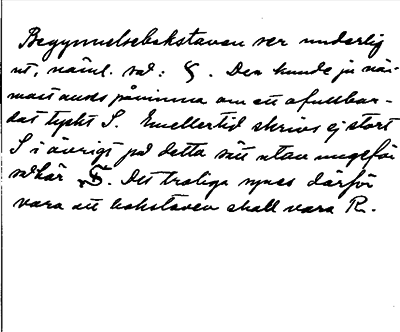 Begynnelsebokstaven ser underlig
ut, näml. så: § . Den kunde ju när-
mast anses påminna om ett ofullbor-
dat tyskt S. Emellertid skrivs ej stort
S i övrigt på detta sätt utan ungefär
så här S. Det troliga synes därför
vara att bokstaven skall vara R.